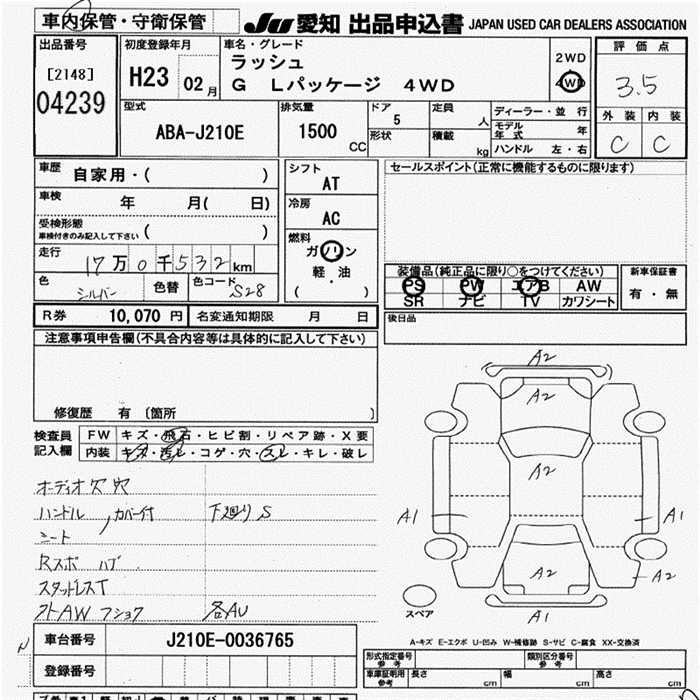 車内保管・守衛保管
JU 愛知 出品申込書 JAPAN USED CAR DEALERS ASSOCIATION
出品番号
[2148]
04239
初度登録年月
H23 02 月
車名・グレード
ラッシュ
G Lパッケージ 4WD
2WD
4WD
評価点
3.5
外装 内装
C C
型式
ABA-J210E
排気量
1500 CC
ドア
5
形状
定員
人
積載
kg
ディーラー・並行
モデル年式 年
ハンドル 左・右
車歴
自家用・( )
車検
年 月( 日)
受検形態
車検付きのみ記入して下さい ( )
走行
17万0千532km
色
シルバー
色替
色コード
S28
シフト
AT
冷房
AC
燃料
ガソリン
軽・油
( )
セールスポイント(正常に機能するものに限ります)
装備品(純正品に限り○をつけてください)
PS PW エアB AW
SR ナビ TV カワシート
新車保証書
有・無
R券 10,070 円 名変通知期限 月 日
後日品
注意事項申告欄(不具合内容等は具体的に記入して下さい)
修復歴 有 〔箇所 〕
検査員記入欄
FW キズ・飛石・ヒビ割・リペア跡・X要
内装 キズ・汚レ・コゲ・穴・スレ・キレ・破レ
オーディオ欠 穴
ハンドル カバー付 下廻り S
シート
Rスポ ハゲ
スタッドレスT
AW フショク 各AU
A2
A2
A2
A1
A1
A2
A2
A1
スペア
A-キズ E-エクボ U-凹み W-補修跡 S-サビ C-腐食 XX-交換済
車台番号 J210E-0036765
登録番号
型式指定番号 参考
類別区分番号 参考
車庫証明用 参考
長さ cm 幅 cm 高さ cm